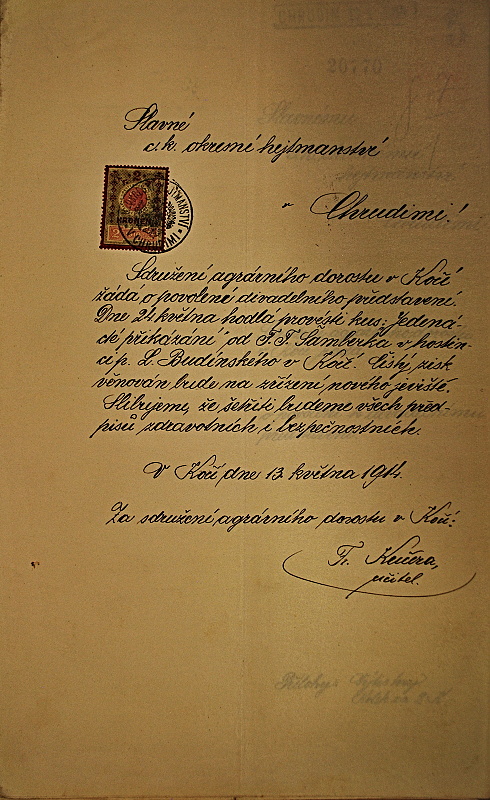 Slavné
c.k. okresní hejtmanství
v Chrudimi!
Sdružení agrárního dorostu v Kočí
žádá o povolení divadelního představení.
Dne 24 května hodlá provésti kus: „Jedena-
cté přikázání" od F. F. Šamberka v hostin-
ci p. L. Budínského v Kočí. Čistý zisk
věnován bude na zřízení nového jeviště.
Slibujeme, že šetřiti budeme všech před-
pisů zdravotních i bezpečnostních.
V Kočí, dne 13 května 1914.
Za sdružení agrárního dorostu v Kočí:
Fr. Kučera,
učitel.
20770
CHRUDIM
2
KRONEN